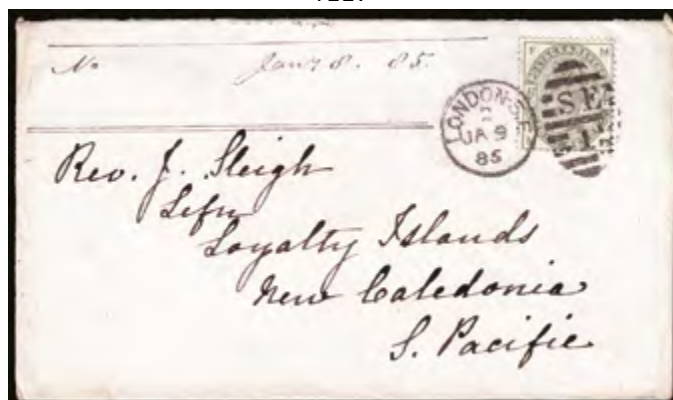 No Jany 8. 85.
LONDON·S.E
JA 9
85
S.E
1
Rev. J. Sleigh
Lifu
Loyalty Islands
New Caledonia
S. Pacific